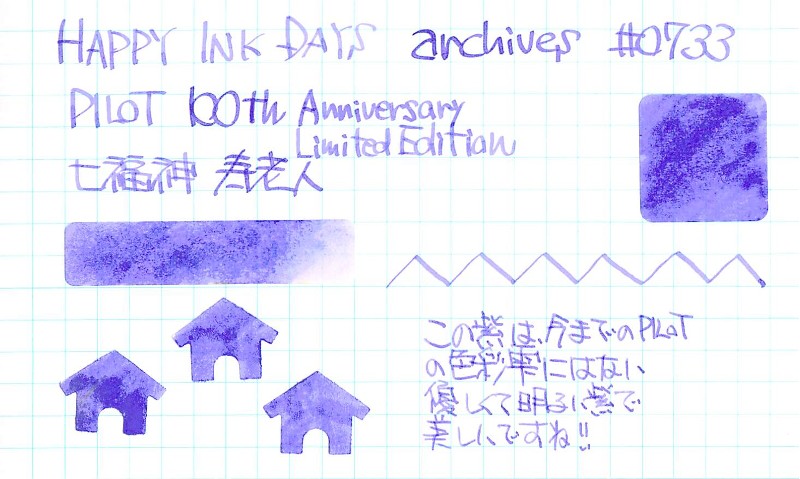 HAPPY INK DAYS archives #0733
PILOT 100th Anniversary
Limited Edition
七福神 寿老人
この紫は、今までのPILOT
の色彩雫にはない
優しくて明るい紫で
美しいですね!!